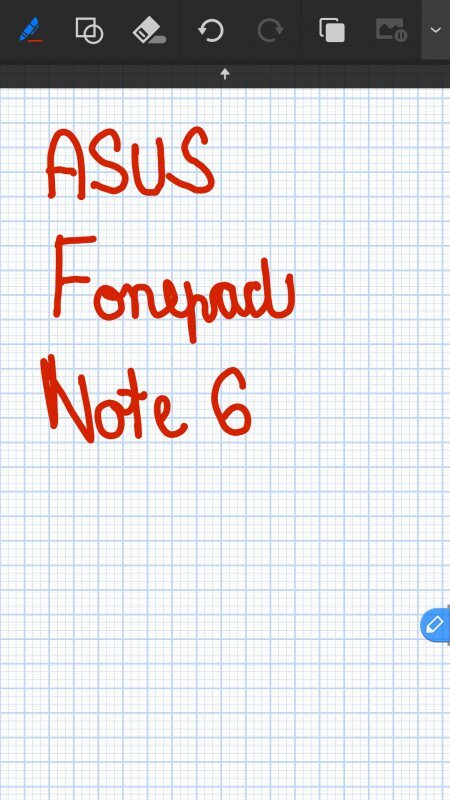 ASUS
Fonepad
Note 6